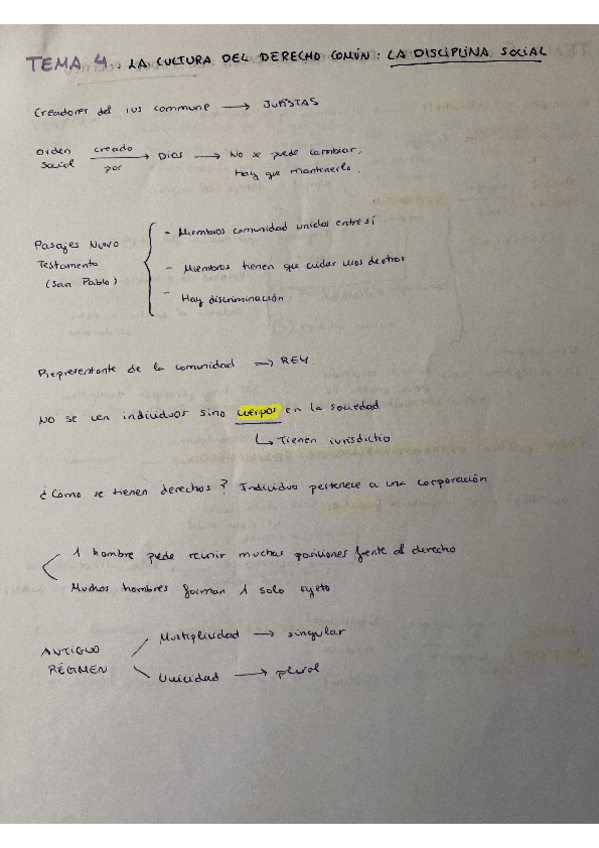 TEMA 4. LA CULTURA DEL DERECHO COMÚN: LA DISCIPLINA SOCIAL
Creadores del ius commune → JURISTAS
Orden social creado por → Dios → No se puede cambiar,
hay que mantenerlo.
Pasajes Nuevo
Testamento
(San Pablo)
- Miembros comunidad unidos entre sí
- Miembros tienen que cuidar unos de otros
- Hay discriminación
Representante de la comunidad → REY.
No se ven individuos sino cuerpos en la sociedad
↳ Tienen iurisdictio
¿Cómo se tienen derechos? Individuo pertenece a una corporación
1 hombre puede reunir muchas posiciones frente al derecho
Muchos hombres forman 1 solo sujeto
ANTIGUO
RÉGIMEN
Multiplicidad → singular
Unicidad → plural